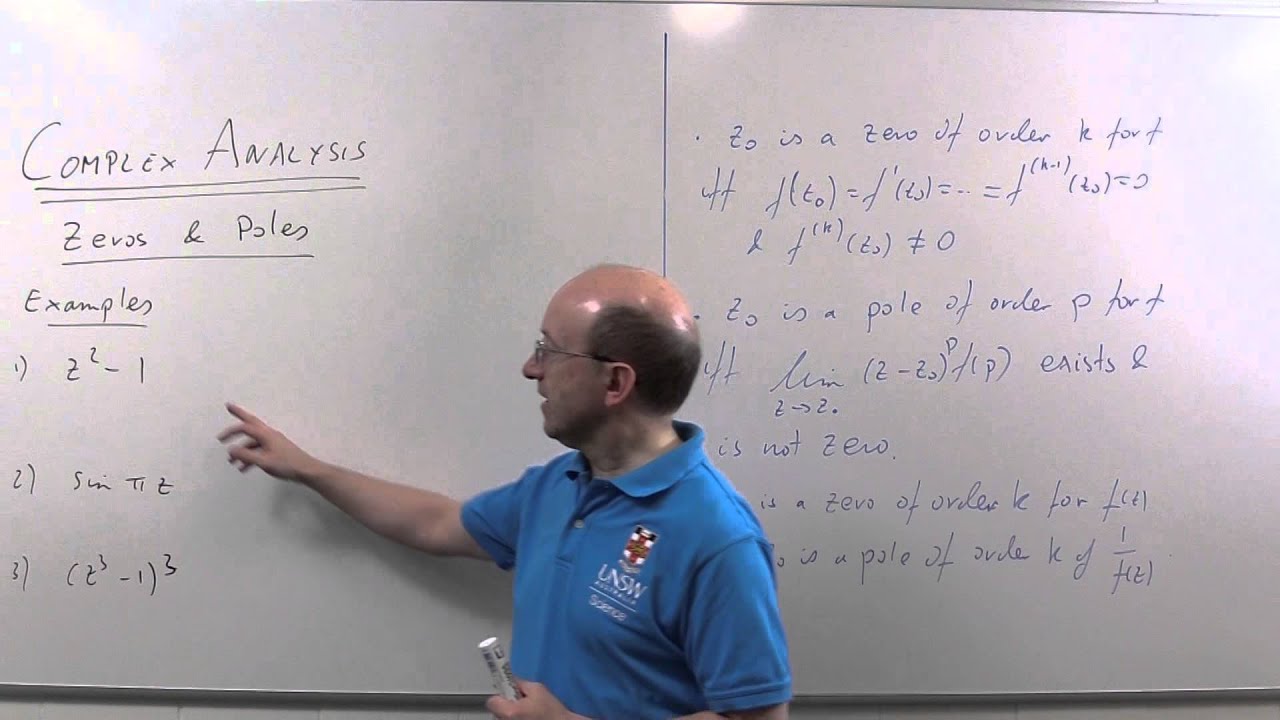 COMPLEX ANALYSIS
Zeros & Poles
Examples
1) z² - 1
2) sin π z
3) (z³ - 1)³
• z₀ is a zero of order k for f
iff f(z₀) = f'(z₀) = ... = f⁽ᵏ⁻¹⁾(z₀) = 0
& f⁽ᵏ⁾(z₀) ≠ 0
• z₀ is a pole of order p for f
iff lim (z - z₀)ᵖ f(p) exists &
z → z₀
is not zero.
is a zero of order k for f(z)
is a pole of order k of 1/f(z).
UNSW
AUSTRALIA
Science